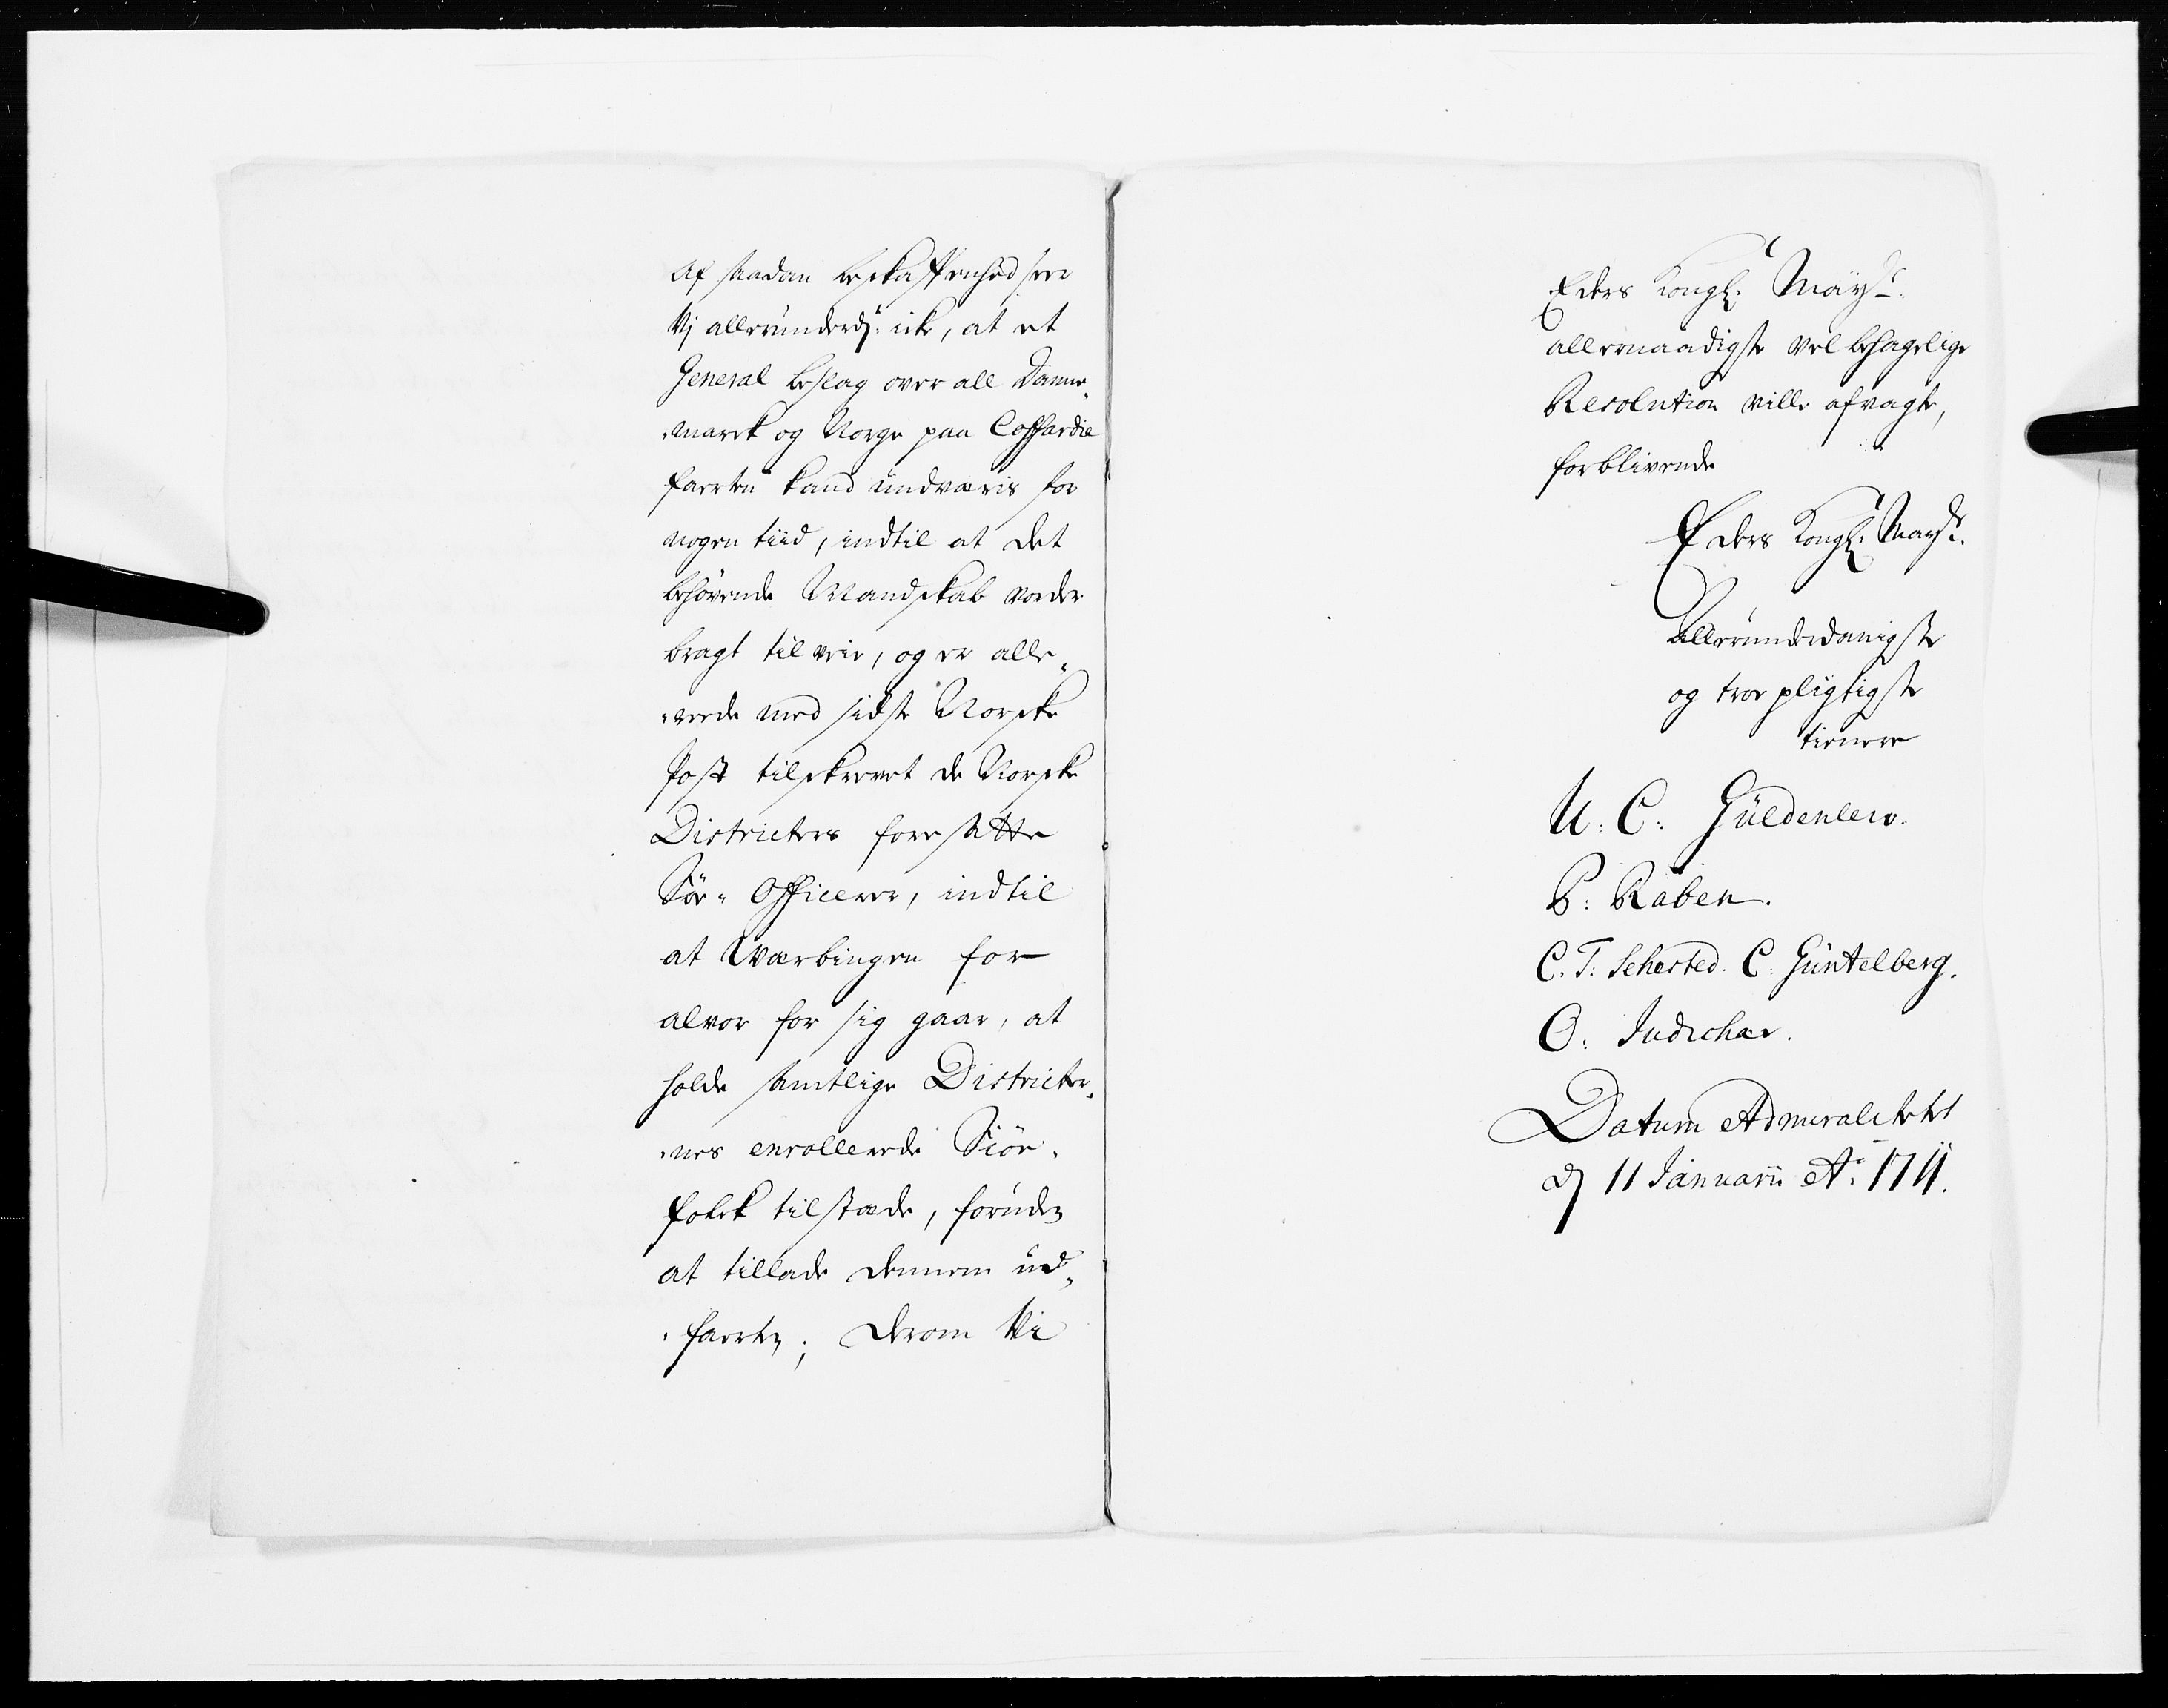 Af saadan beskaffenhed seer
Vj allerúnderd: icke, at et
General beslag over all Danne-
-marck og Norge paa Coffardie
farten kand úndværis for
nogen tiid, indtil at det
behøvende Mandskab vorder
bragt til veie, og er alle-
-rede med sidste Norske
Post tilskrevet de Norske
Districters foresatte
Söe-Officerer, indtil
at Værbingen for
alvor for sig gaar, at
holde samtlige Districter-
-nes enrollerede Siöe-
folck tilstæde, forúden
at tillade dennem úd-
-farten; derom Vi
Eders Kongl. Maÿt.
allernaadigste velbehagelige
Resolution ville afvagte,
forblivende
Eders Kongl. Mayts.
Allerúnderdanigste
og troe pligtigste
tienere
U. C. Güldenlew.
P. Raben.
C. T. Sehested. C. Güntelberg.
O. Judichær.
Datum Admiralitetet
d 11 Januarii Ao. 1711.